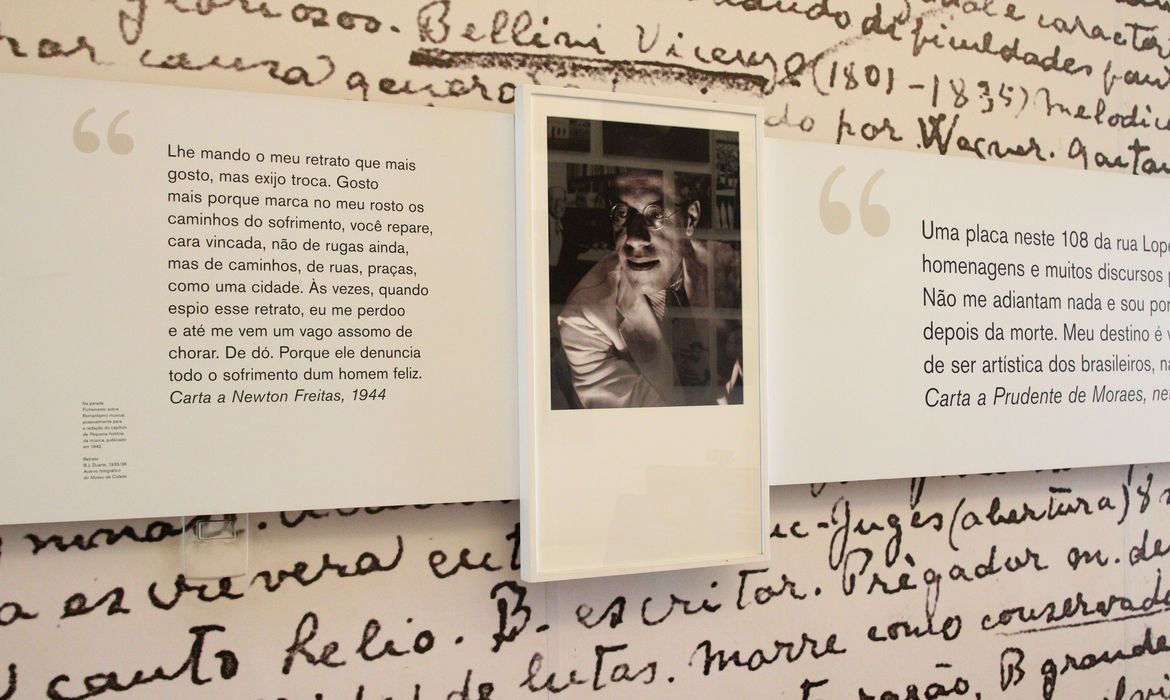 gloriosos. Bellini Vicenzo (1801-1835) melodic
por causa genero
do por Wagner. Gaeta
dificuldades
“
Lhe mando o meu retrato que mais
gosto, mas exijo troca. Gosto
mais porque marca no meu rosto os
caminhos do sofrimento, você repare,
cara vincada, não de rugas ainda,
mas de caminhos, de ruas, praças,
como uma cidade. Às vezes, quando
espio esse retrato, eu me perdoo
e até me vem um vago assomo de
chorar. De dó. Porque ele denuncia
todo o sofrimento dum homem feliz.
Carta a Newton Freitas, 1944
Na parede
Fichamento sobre
Romantismo musical,
possivelmente para
a redação do capítulo
de Pequena história
da música, publicado
em 1942.
Retrato
B.J. Duarte, 1935/38
Acervo fotográfico
do Museu da Cidade
“
Uma placa neste 108 da rua Lope
homenagens e muitos discursos
Não me adiantam nada e sou por
depois da morte. Meu destino é
de ser artística dos brasileiros, na
Carta a Prudente de Moraes, ne
uc-Juges (abertura) 8
a escrevera
B. escritor. Prègador m. de
canto helio.
de lutas. Morre como conservado
razão. B grande